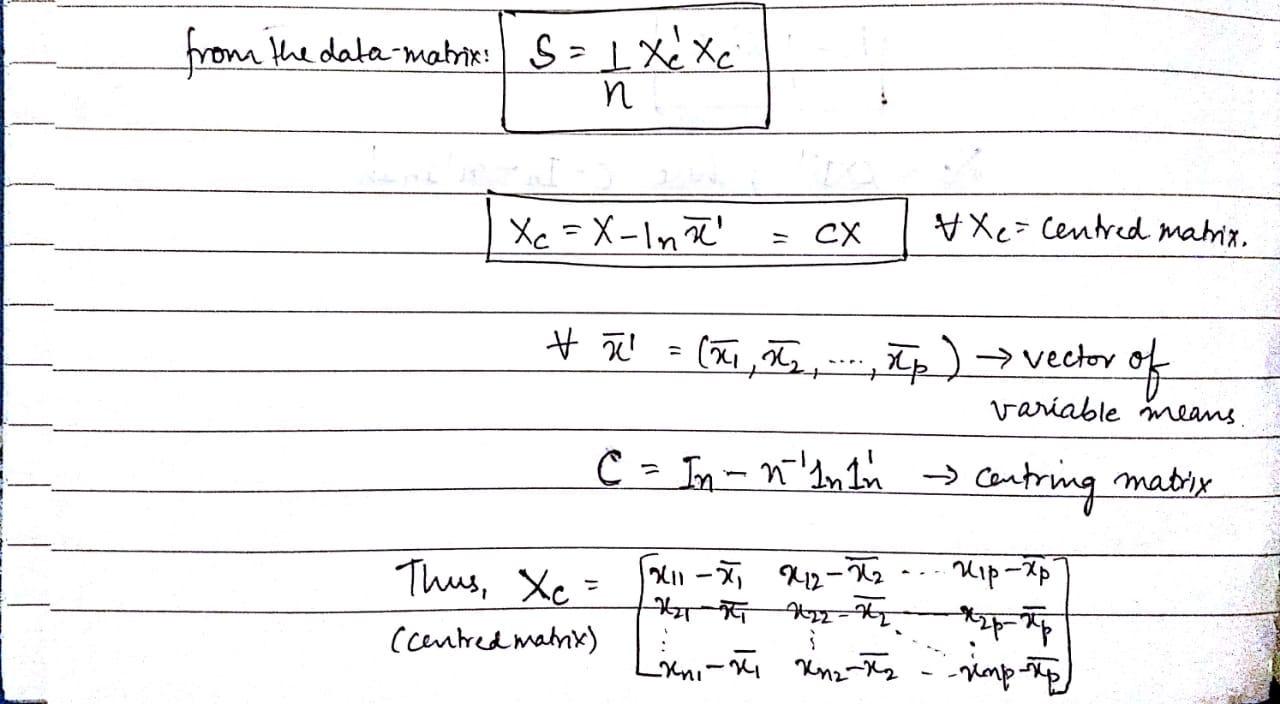 from the data-matrix: S = 1/n Xc' Xc
Xc = X - 1n x̄' = CX ∀ Xc = Centred matrix.
∀ x̄' = (x̄1, x̄2, ...., x̄p) → vector of
variable means.
C = In - n⁻¹ 1n 1n' → Centring matrix
Thus, Xc = [x11 - x̄1 x12 - x̄2 .... x1p - x̄p
x21 - x̄1 x22 - x̄2 x2p - x̄p
(centred matrix)
xn1 - x̄1 xn2 - x̄2 - - xnp - x̄p]